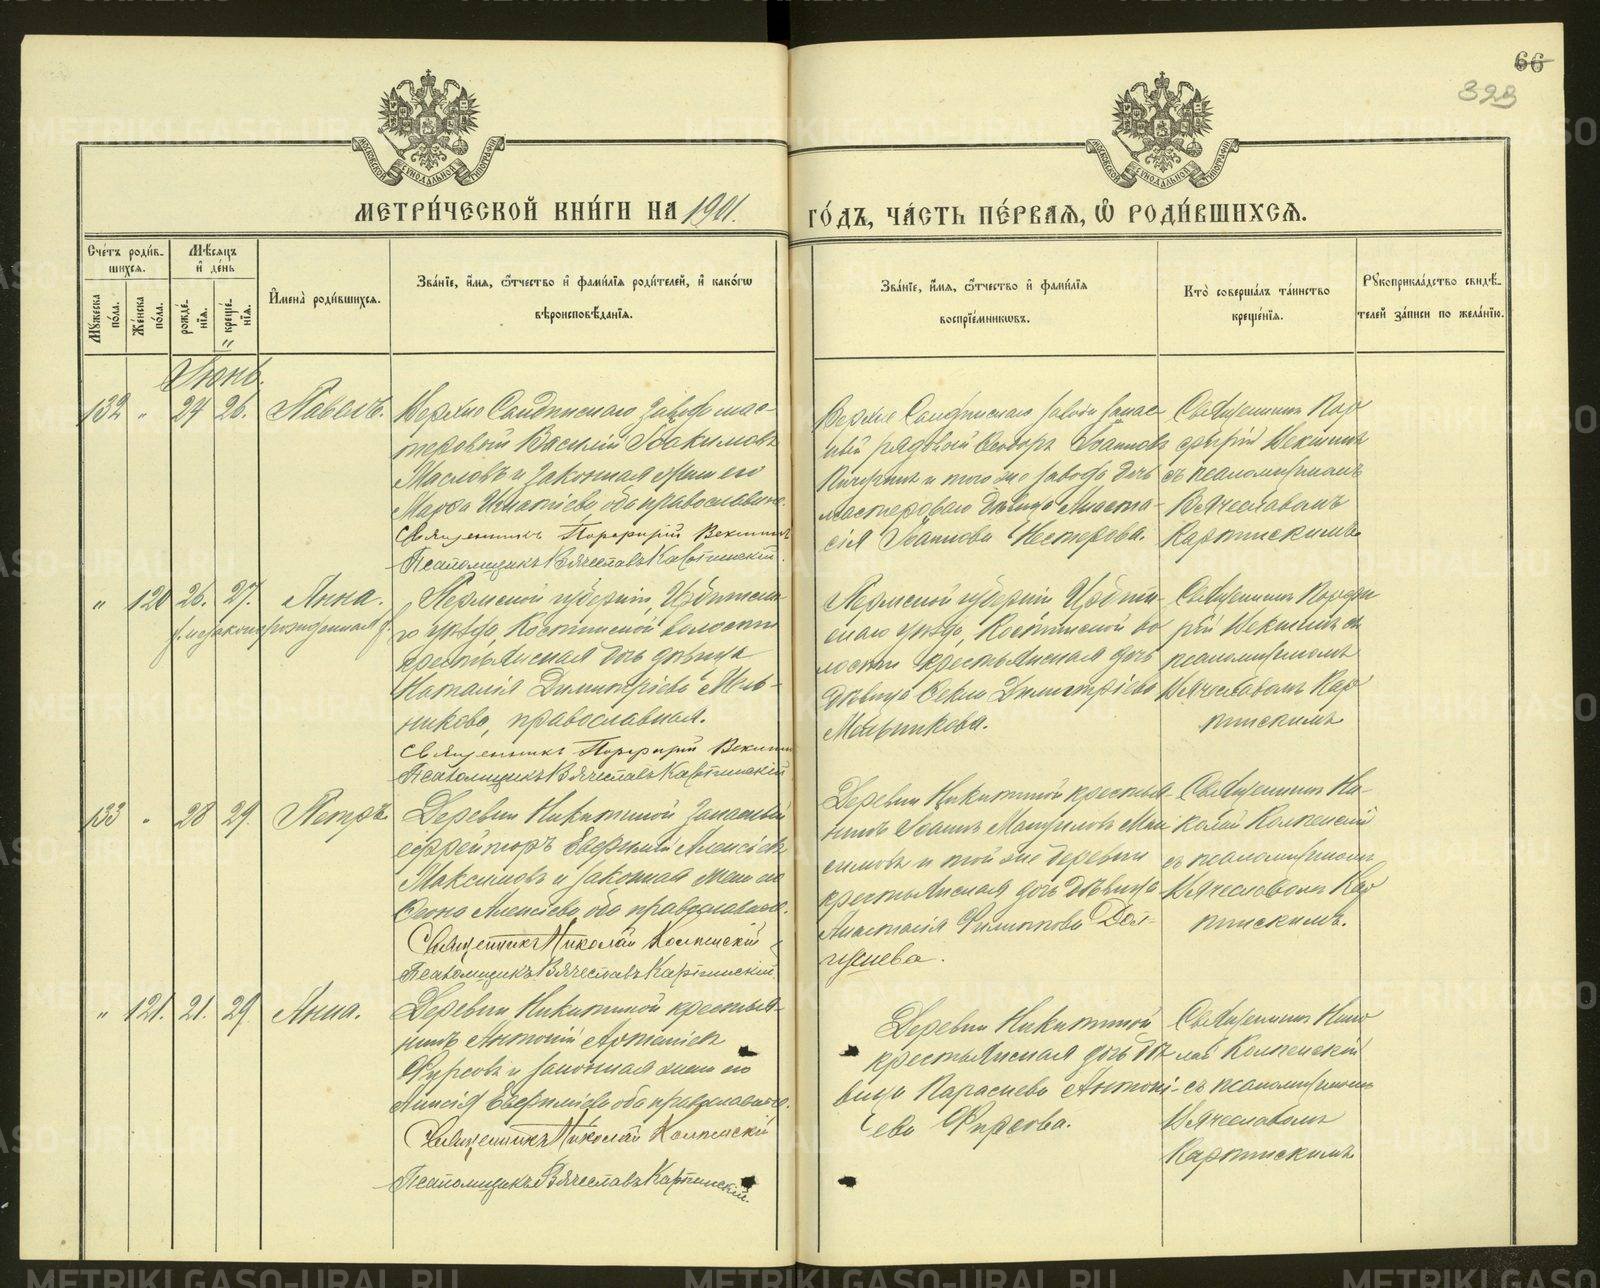 66
323
МЕТРИ́ЧЕСКОЙ КНИ́ГИ НА 1901.
ГО́ДЪ, ЧА́СТЬ ПЕ́РВАѦ, Ѽ РОДИ́ВШИХСѦ.
Сче́тъ роди́в-
шихся.
Мѣ́сяцъ
и҆ де́нь
Мꙋ́жеска по́ла.
Же́нска по́ла.
рожде́-
нїя.
креще́-
нїя.
И҆мена̀ роди́вшихся.
Зва́нїе, и҆́мя, ѻ҆́тчество и҆ фами́лїя роди́телей, и҆ како́гѡ
вѣроисповѣ́данїя.
Зва́нїе, и҆́мя, ѻ҆́тчество и҆ фами́лїя
воспрїе́мникѡвъ.
Кто̀ соверша́лъ та́инство
креще́нїя.
Рꙋкоприкла́дство свидѣ́-
телей за́писи по жела́нїю.
Іюнь.
132 " 24 26. Павелъ.
Верхне Салдинскаго завода мас-
теровой Василій Іоакимовъ
Масловъ и законная жена его
Марѳа Игнатіева оба православные.
Священникъ Порфирій Векшинъ
Псаломщикъ Вячеславъ Карпинскій
Верхне Салдинскаго завода запас-
ный рядовой Ѳеодоръ Іоанновъ
и того же завода дочь
мастероваго дѣвица Анаста-
сія Іоаннова Нестерова.
Священникъ Пор
фирій Векшинъ
съ псаломщикомъ
Вячеславомъ
Карпинскимъ.
" 120 26. 27. Анна.
незаконнорожденная
Пермской губерніи, Ирбитска-
го уѣзда, Костинской волости
крестьянская дочь дѣвица
Наталія Димитріева Мель-
никова, православная.
Священникъ Порфирій Векшинъ
Псаломщикъ Вячеславъ Карпинскій
Пермской губерніи Ирбит-
скаго уѣзда, Костинской во
лости крестьянская дочь
дѣвица Ѳекла Димитріева
Мельникова.
Священникъ Порфи
рій Векшинъ съ
псаломщикомъ
Вячеславомъ Кар
пинскимъ
133 " 28 29. Петръ.
Деревни Никитиной запасный
ефрейторъ Евфимій Алексіевъ
Максимовъ и законная жена его
Алексіева оба православные.
Священникъ Николай Колпенскій
Псаломщикъ Вячеславъ Карпинскій
Деревни Никитиной крестья-
нинъ Іоаннъ Мак
симовъ и той же деревни
крестьянская дочь дѣвица
Анастасія Филиппова Дол-
гушева.
Священникъ Ни-
колай Колпенскій
съ псаломщикомъ
Вячеславомъ Кар
пинскимъ.
" 121. 21. 29 Анна.
Деревни Никитиной крестья-
нинъ Антоній Артеміевъ
Фирсовъ и законная жена его
Евфиміева оба православные.
Священникъ Николай Колпенскій
Псаломщикъ Вячеславъ Карпинскій.
Деревни Никитиной
крестьянская дочь дѣ
вица Параскева Антоні-
ева Фирсова.
Священникъ Нико
лай Колпенскій
съ псаломщикомъ
Вячеславомъ
Карпинскимъ
METRIKI.GASO-URAL.RU